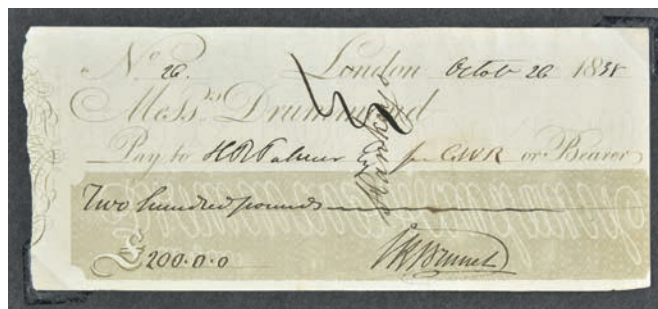 No 26. London Octob 26 1838
Messrs Drummond
Pay to H R Palmer Esq for GWR or Bearer
Two hundred pounds
£200.0.0 I K Brunel
Hankey